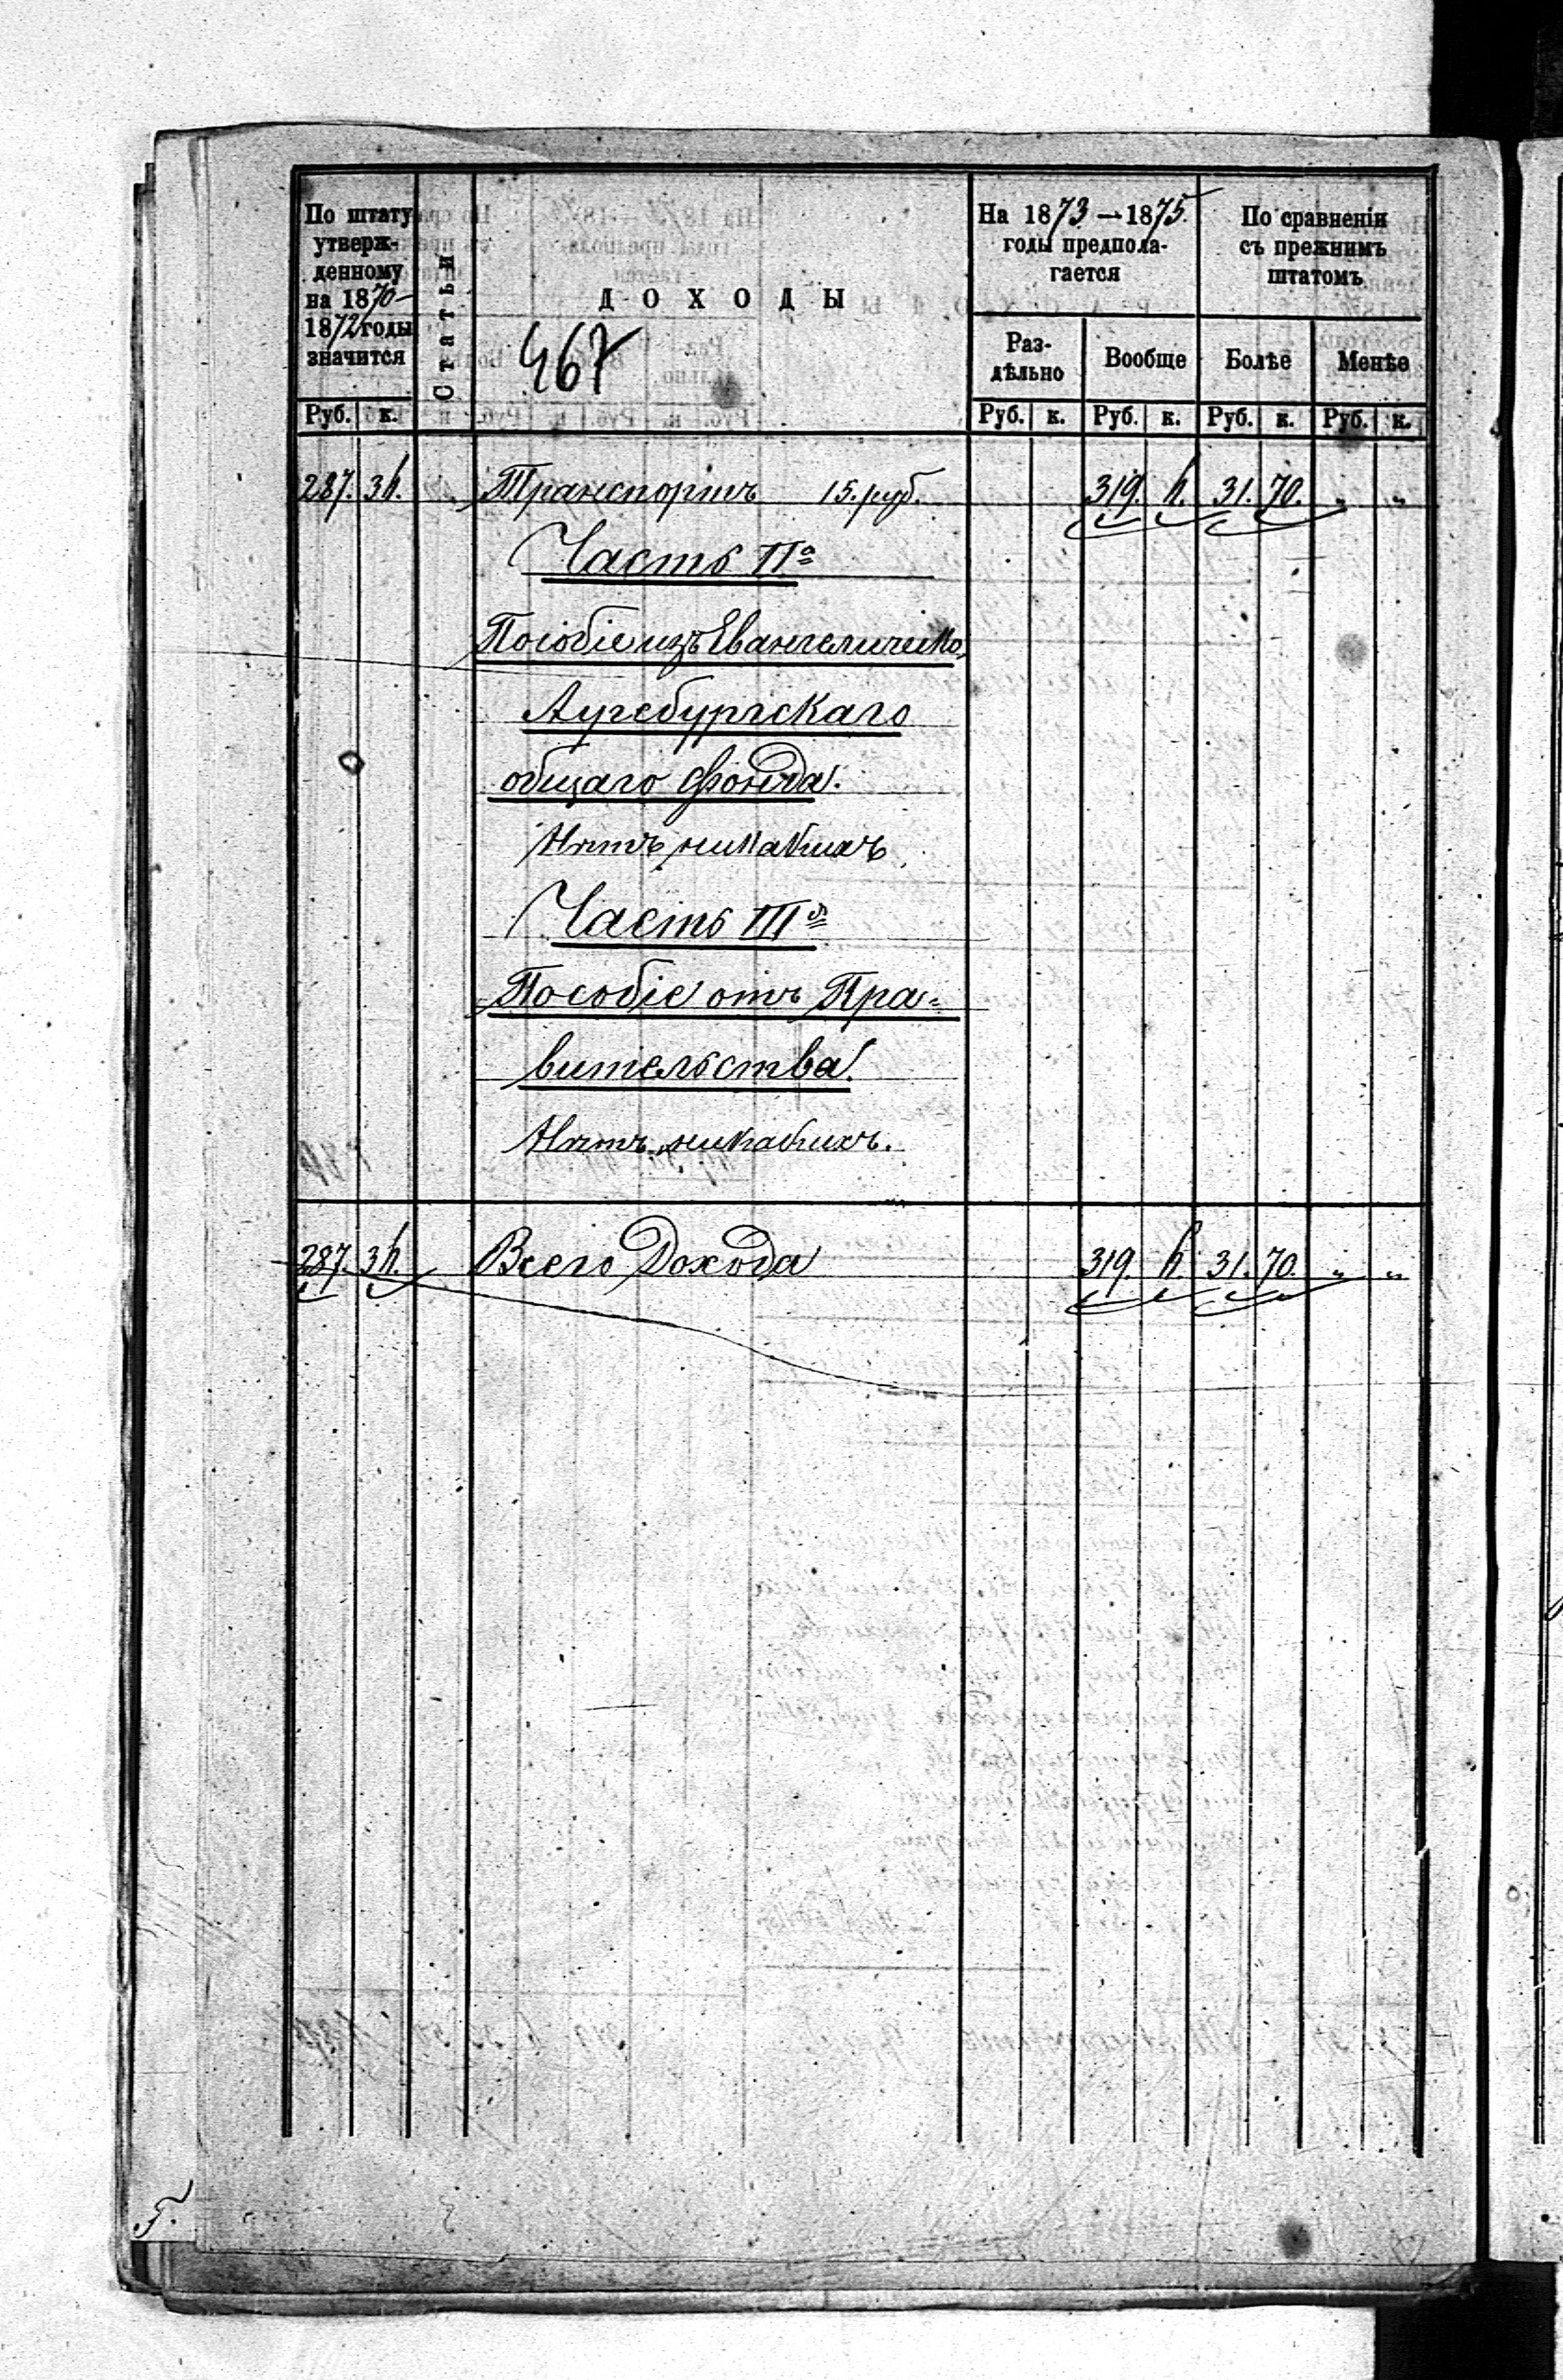 По штату
утверж-
денному
на 1870-
1872 годы
значится
Руб. к.
Статьи
ДОХОДЫ
467
На 1873-1875
годы предпола-
гается
Раз-
дѣльно
Вообще
Руб. к. Руб. к.
По сравненіи
съ прежнимъ
штатомъ
Болѣе Менѣе
Руб. к. Руб. к.
287. Транспортъ 15. руб. 319. 31. 70. " "
Часть IIа
Пособіе изъ Евангелическо-
Аугсбургскаго
общаго фонда.
Нѣтъ никакихъ
Часть IIIя
Пособіе отъ Пра-
вительства.
Нѣтъ никакихъ.
287. Всего Дохода 319. 31. 70. " "